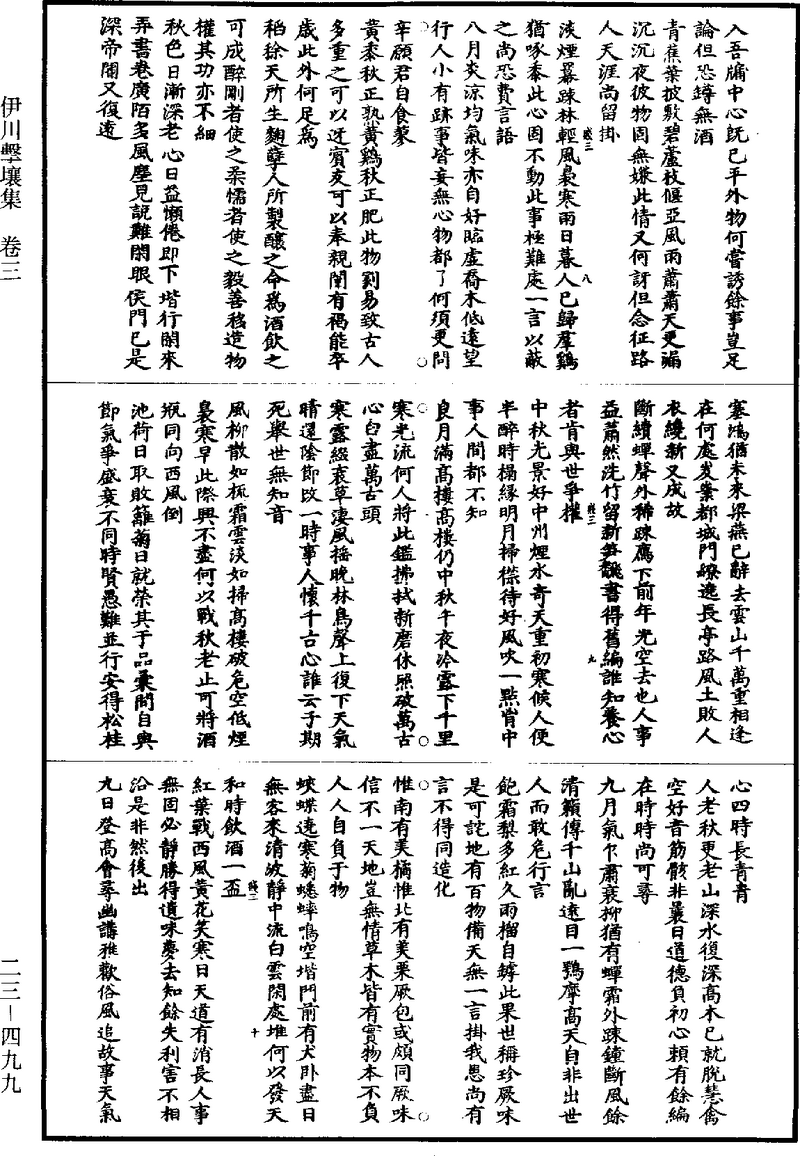 伊川擊壤集　卷三
二三—四九九
入吾牖中心旣已平外物何嘗誘餘事豈足
論但恐罇無酒
青蕉葉披敷碧蘆枝偃亞風雨蕭蕭天更漏
沉沉夜彼物固無嫌此情又何訝但念征路
人天涯尚留掛
淡煙羃踈林輕風裊寒雨日暮人已歸羣鷄
猶啄黍此心固不動此事極難處一言以蔽
之尚恐費言語
八月炎涼均氣味亦自好臨虛喬木低遠望
行人小有跡事皆妄無心物都了何須更問
辛願君自食蓼
黃黍秋正熟黃鷄秋正肥此物到易致古人
多重之可以迓賓友可以奉親闈有褐能卒
歲此外何足爲
稻徐天所生麴孽人所製釀之命爲酒飲之
可成醉剛者使之柔懦者使之毅善移造物
權其功亦不細
秋色日漸深老心日益懶倦即下堦行閑來
弄書卷廣陌多風塵見說難閑眼侯門已是
深帝閽又復遠
塞鴻猶未來梁燕已辭去雲山千萬重相逢
在何處发業都城門繚遶長亭路風土敗人
衣繞新又成故
斷續蟬聲外稀踈鴈下前年光空去也人事
益蕭然洗竹留新笋翻書得舊編誰知養心
者肯與世爭權
中秋光景好中州煙水奇天重初寒候人便
半醉時榻緣明月掃襟待好風吹一點胷中
事人間都不知
良月滿高樓高樓仍中秋午夜冷露下千里
寒光流何人將此鑑拂拭新磨休照破萬古
心白盡萬古頭
寒露綴衰草淒風搖晚林鳥聲上復下天氣
晴還陰節改一時事人懷千古心誰云子期
死舉世無知音
風柳散如梳霜雲淡如掃高樓破危空低煙
裊寒早此際興不盡何以戰秋老止可將酒
瓶同向西風倒
池荷日取敗籬菊日就榮其于品彙間自與
節氣爭盛衰不同時賢愚難並行安得松桂
心四時長青青
人老秋更老山深水復深高木已就脫慧禽
空好音筋骸非曩日道德負初心頼有餘編
在時時尚可尋
九月氣乍肅衰柳猶有蟬霜外踈鐘斷風餘
清籟傳千山亂遠目一鶚摩高天自非出世
人而敢危行言
飽霜梨多紅久雨榴自罅此果世稱珍厥味
是可詫地有百物備天無一言掛我思尚有
言不得同造化
惟南有美橘惟北有美栗厥包或頗同厥味
信不一天地豈無情草木皆有實物本不負
人人自負于物
蛺蝶遶寒菊蟋蟀鳴空堦門前有犬卧盡日
無客來清波靜中流白雲閑處堆何以發天
和時飲酒一盃
紅葉戰西風黃花笑寒日天道有消長人事
無固必靜勝得遺味夢去知餘失利害不相
沿是非然後出
九日登高會尋幽講雅歡俗風追故事天氣